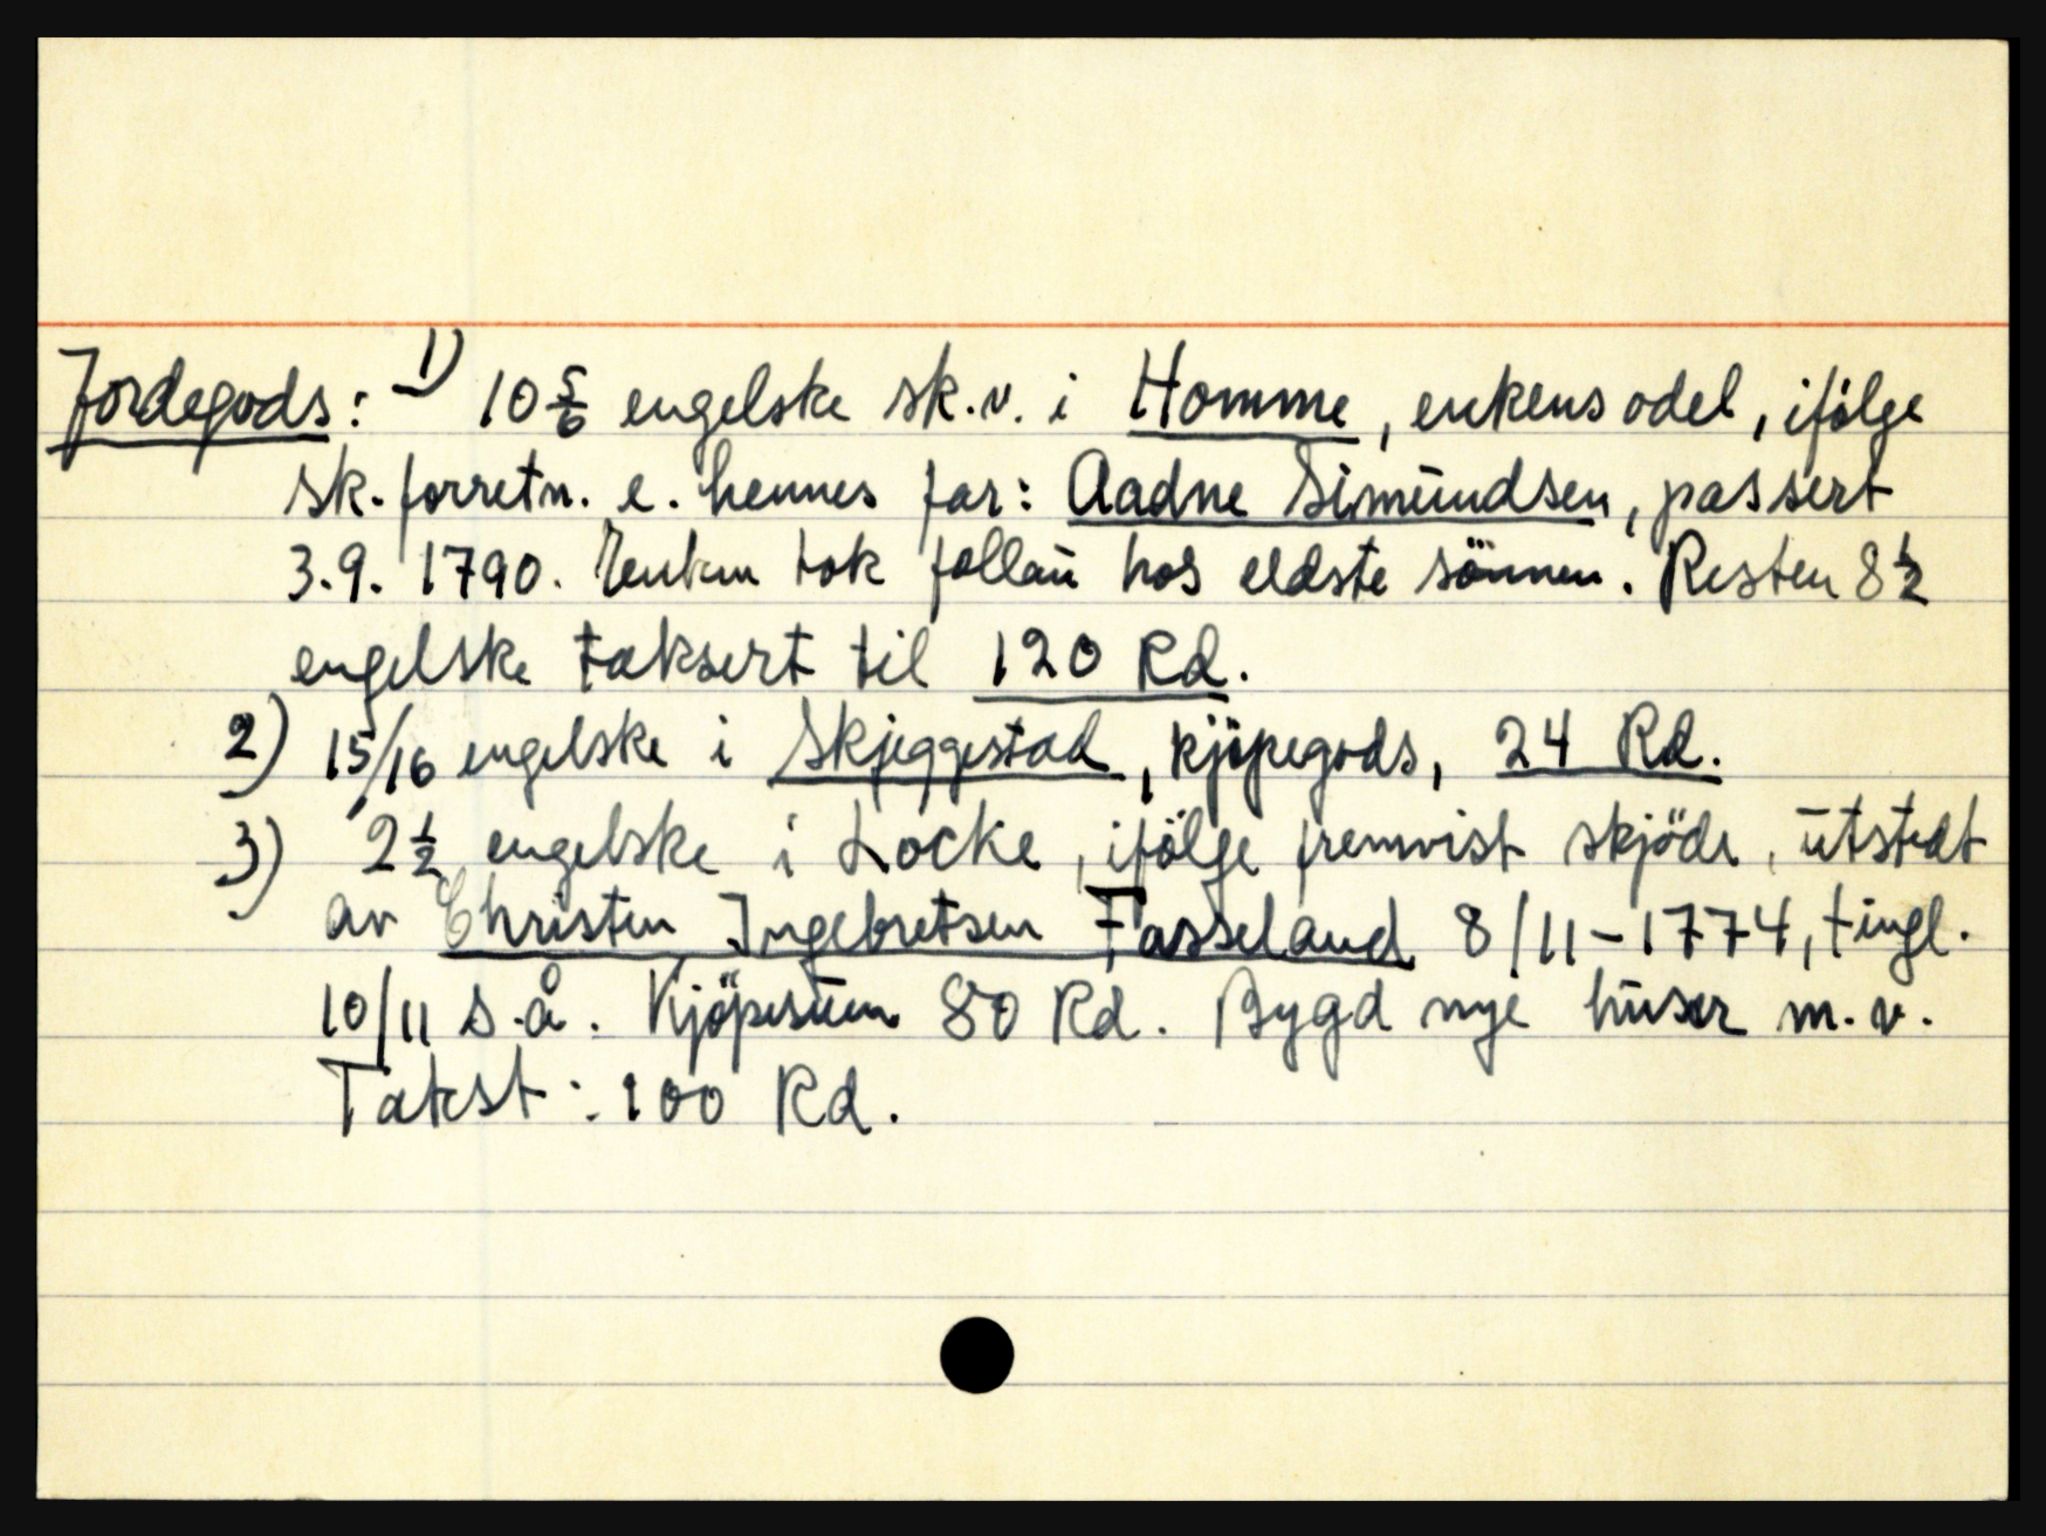 Jordegods: 1) 10 5/6 engelske sk.v. i Homme, enkens odel, ifölge
sk. forretn. e. hennes far: Aadne Simundsen, passert
3.9. 1790. Enken tok follau hos eldste sönnen. Resten 8 1/2
engelske taksert til 120 Rd.
2) 15/16 engelske i Skjeggestad, kjöpegods, 24 Rd.
3) 2 1/2 engelske i Locke, ifölge fremvist skjöde, utstedt
av Christen Ingebretsen Fasseland 8/11-1774, tingl.
10/11 s.å. Kjöpesum 80 Rd. Bygd nye huser m.v.
Takst: 100 Rd.